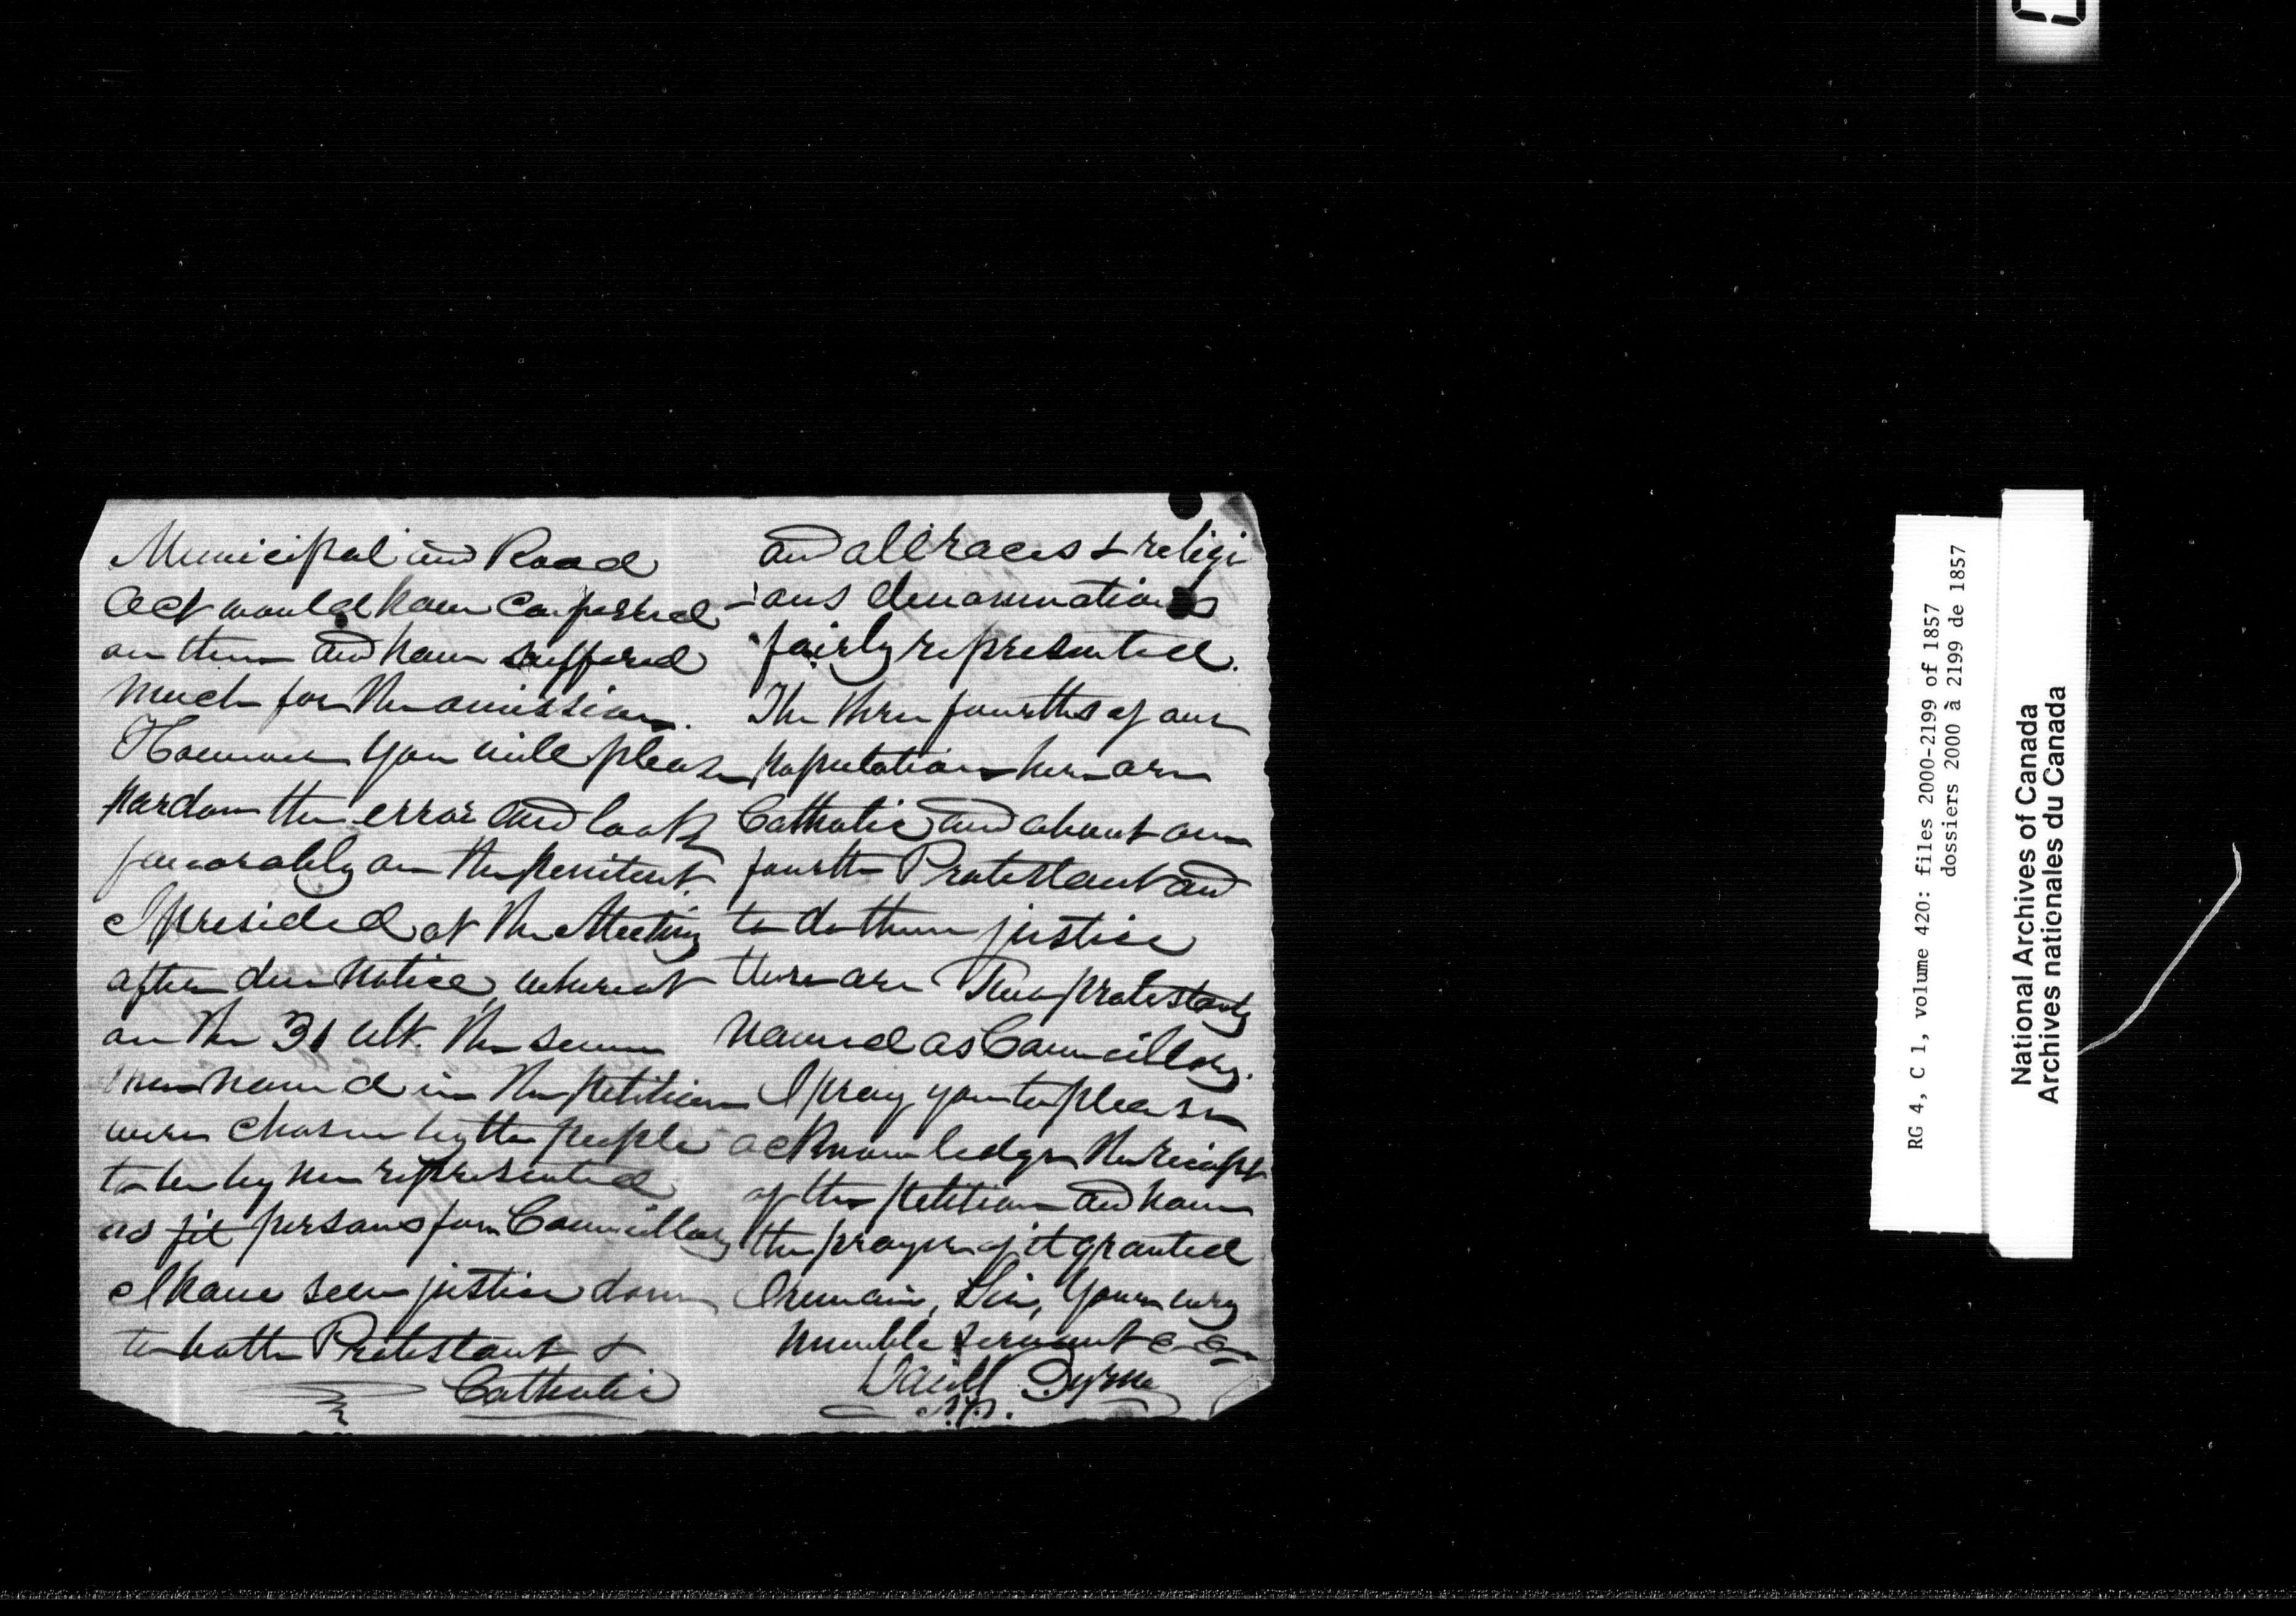 Municipal and Road
Act would have conferred
on them and have suffered
much for the omission.
However you will please
pardon the error and look
favorably on the penitent.
I presided at the Meeting
after due notice, whereat
on the 31 ult. the seven
men named in the petition
were chosen by the people
to be by me represented
as fit persons for Councillors
I have seen justice done
to both Protestant &
Catholic
and all races & religi
-ous denominations
fairly represented.
The three fourths of our
population here are
Catholic and about one
fourth Protestant and
to do them justice
there are Two protestants
named as Councillors.
I pray you to please
acknowledge the receipt
of the petition and have
the prayer of it granted
I remain, Sir, Your very
humble servant &c &c
Daniel Byrne
RG 4, C 1, volume 420: files 2000-2199 of 1857
dossiers 2000 à 2199 de 1857
National Archives of Canada
Archives nationales du Canada